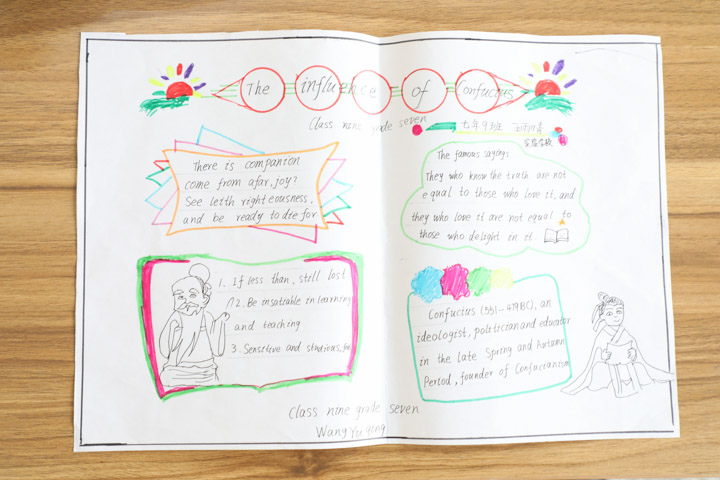 The influence of Confucius
Class nine grade seven
七年9班
There is companion
come from afar, joy?
See leith righteousness,
and be ready to die for
The famous sayings
They who know the truth are not
equal to those who love it, and
they who love it are not equal to
those who delight in it
1. If less than, still lost
2. Be insatiable in learning
and teaching
3. Sensitive and studious,
Confucius (551-479BC), an
ideologist, politician and educator
in the late Spring and Autumn
Period, founder of Confucianism
Class nine grade seven
Wang Yu qing